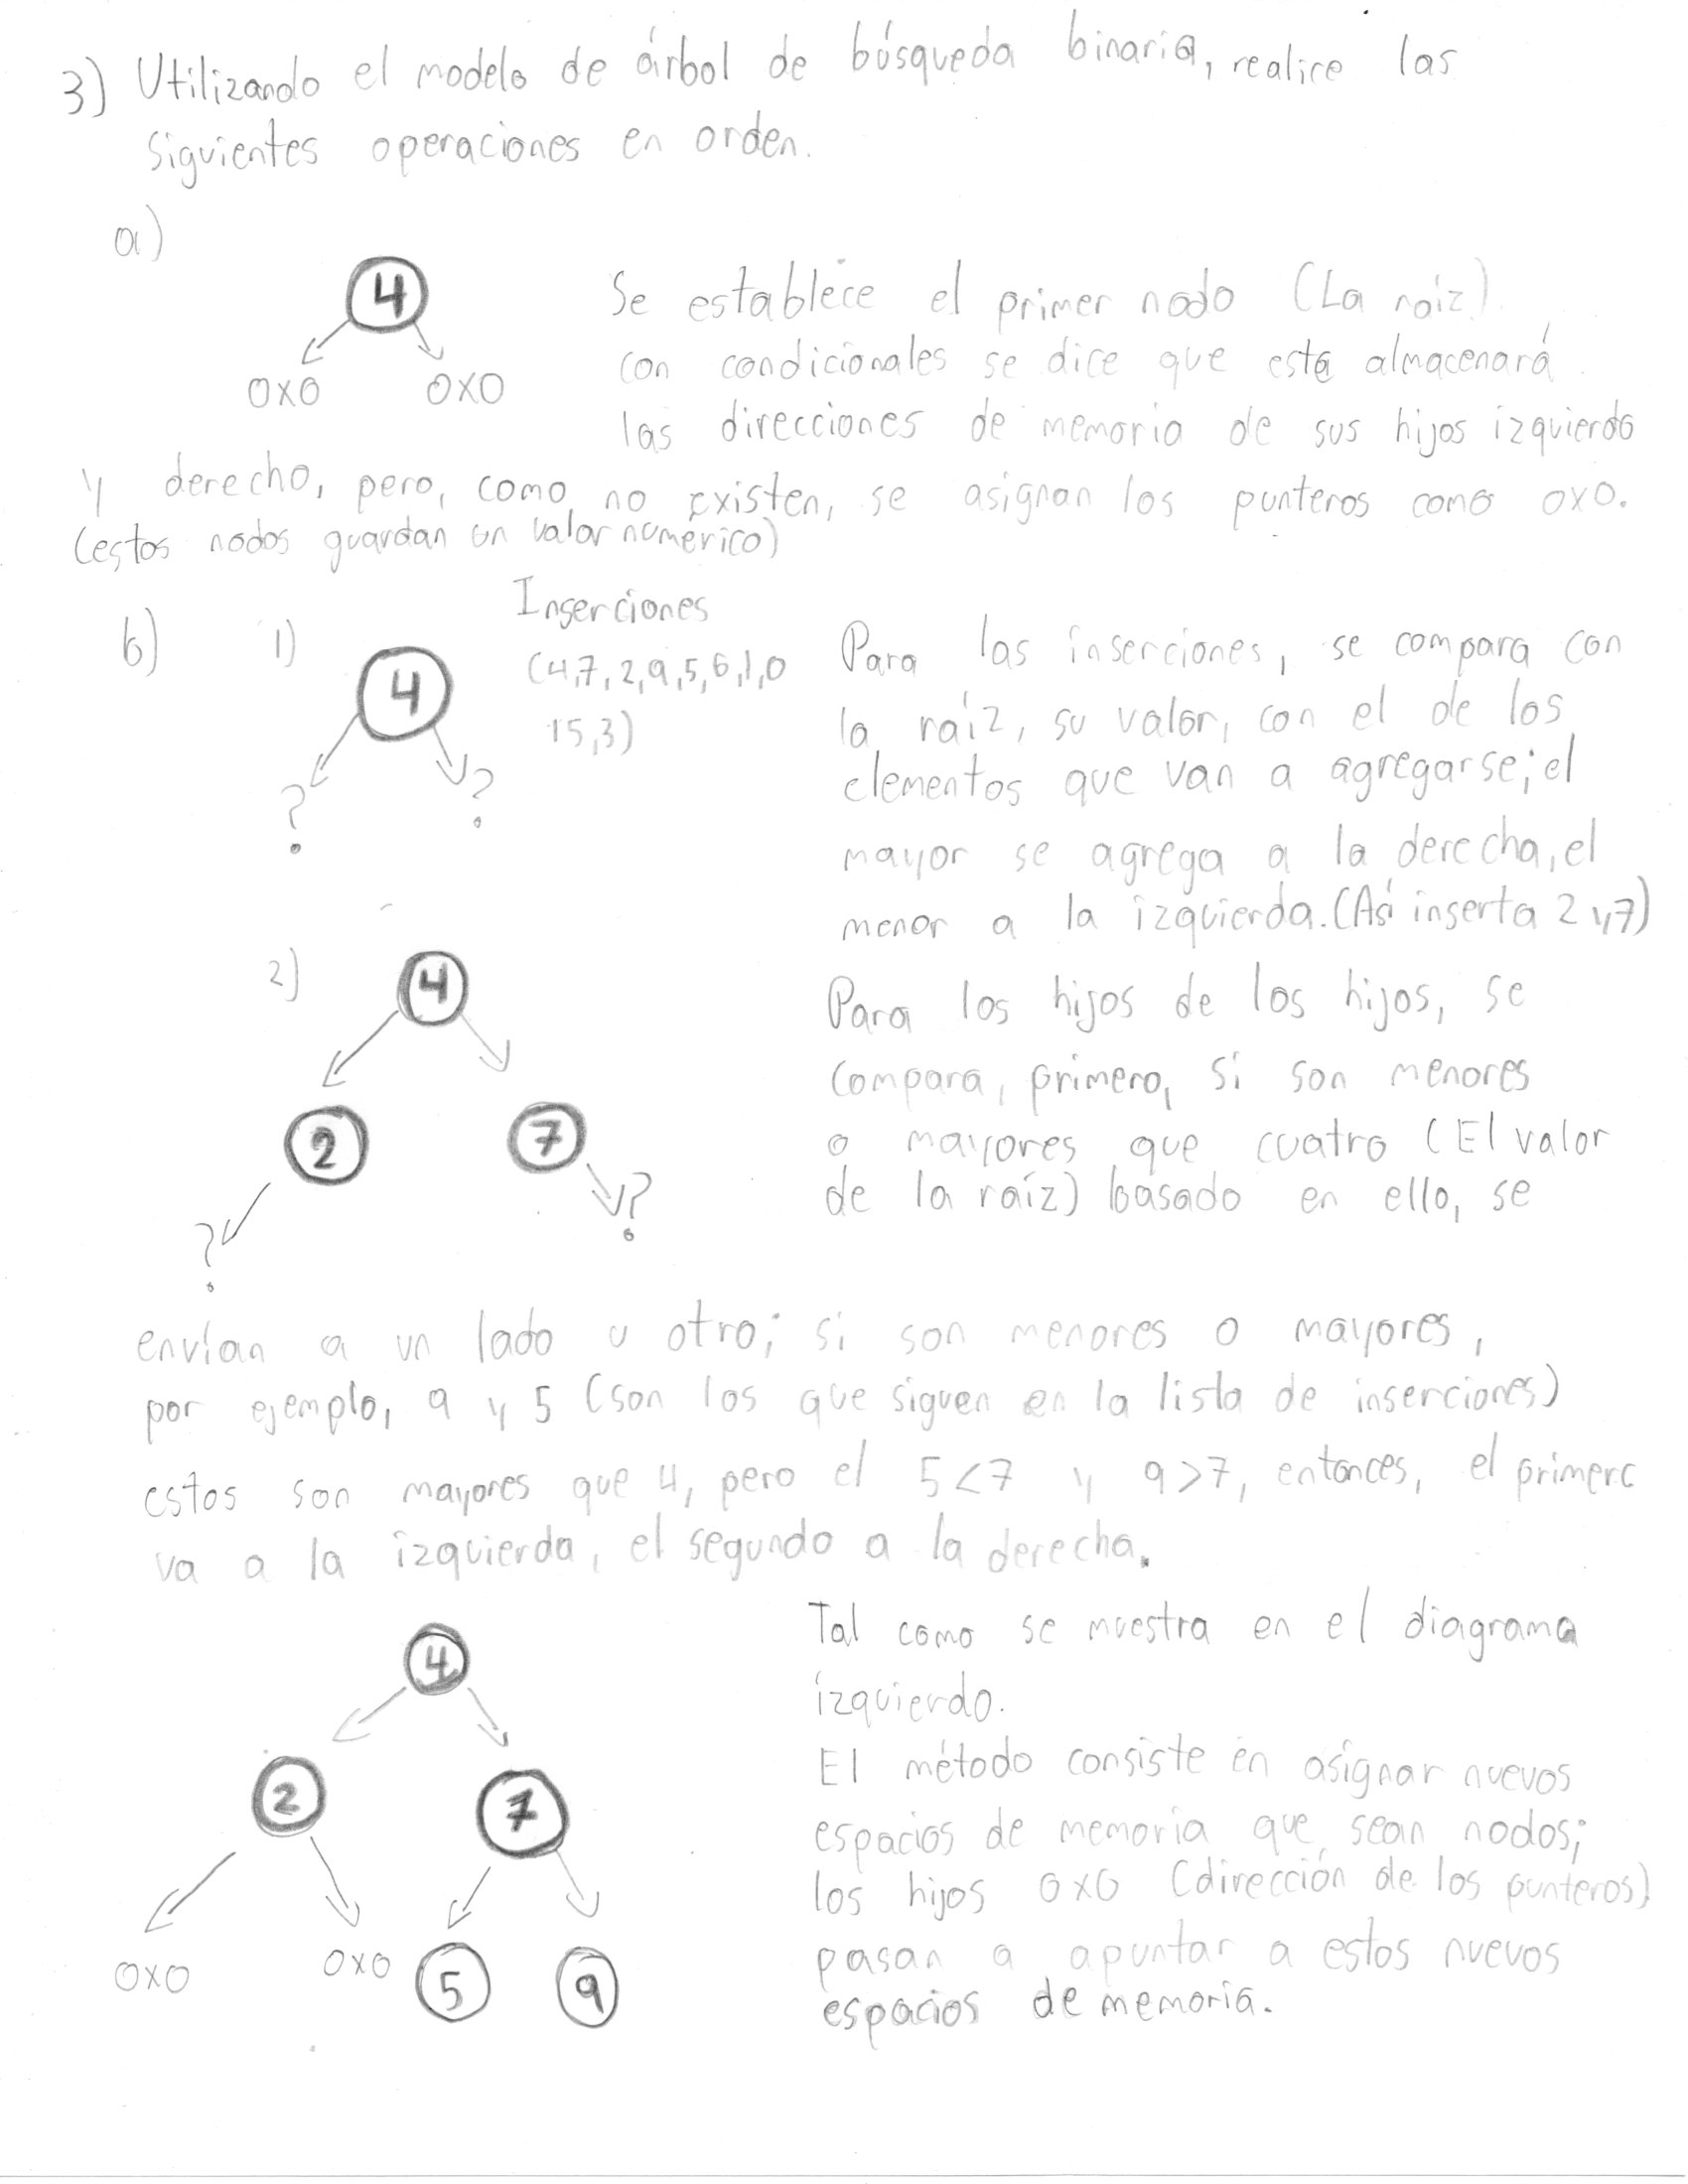 3) Utilizando el modelo de árbol de búsqueda binaria, realice las
siguientes operaciones en orden.
a)
4
0x0 0x0
Se establece el primer nodo (La raíz)
con condicionales se dice que este almacenará
las direcciones de memoria de sus hijos izquierdo
y derecho, pero, como no existen, se asignan los punteros como 0x0.
(estos nodos guardan un valor numérico)
b) 1)
4
? ?
Inserciones
(4,7,2,9,5,6,1,0
15,3)
Para las inserciones, se compara con
la raíz, su valor, con el de los
elementos que van a agregarse; el
mayor se agrega a la derecha, el
menor a la izquierda. (Así inserta 2 y 7)
2)
4
2 7
? ?
Para los hijos de los hijos, se
compara, primero, si son menores
o mayores que cuatro (El valor
de la raíz) basado en ello, se
envían a un lado u otro; si son menores o mayores,
por ejemplo, 9 y 5 (son los que siguen en la lista de inserciones)
estos son mayores que 4, pero el 5<7 y 9>7, entonces, el primero
va a la izquierda, el segundo a la derecha.
4
2 7
0x0 0x0 5 9
Tal como se muestra en el diagrama
izquierdo.
El método consiste en asignar nuevos
espacios de memoria que sean nodos;
los hijos 0x0 (dirección de los punteros)
pasan a apuntar a estos nuevos
espacios de memoria.